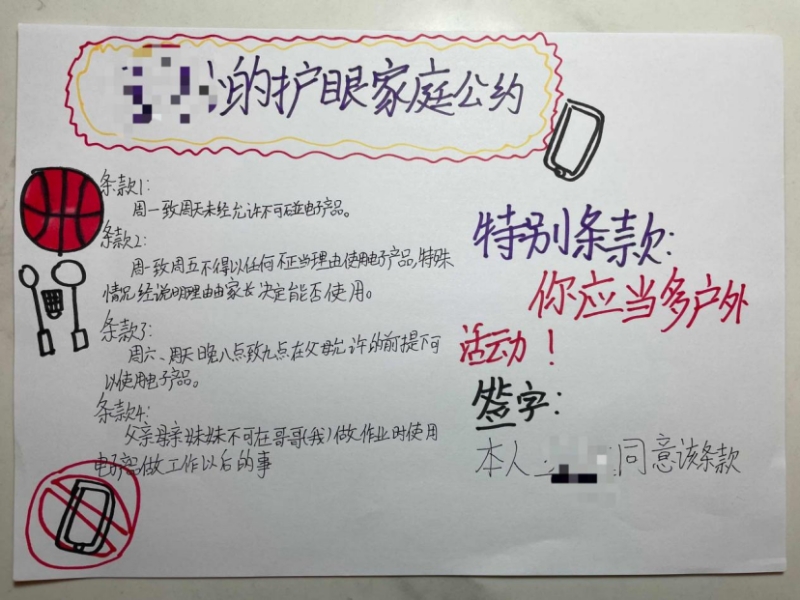 的护眼家庭公约
条款1:
周一致周天未经允许不可碰电子产品。
条款2:
周一致周五不得以任何不正当理由使用电子产品,特殊
情况经说明理由由家长决定能否使用。
条款3:
周六、周天晚八点致九点在父母允许的前提下可
以使用电子产品。
条款4:
父亲母亲妹妹不可在哥哥(我)做作业时使用
电子产品做工作以后的事
特别条款:
你应当多户外
活动!
签字:
本人 同意该条款